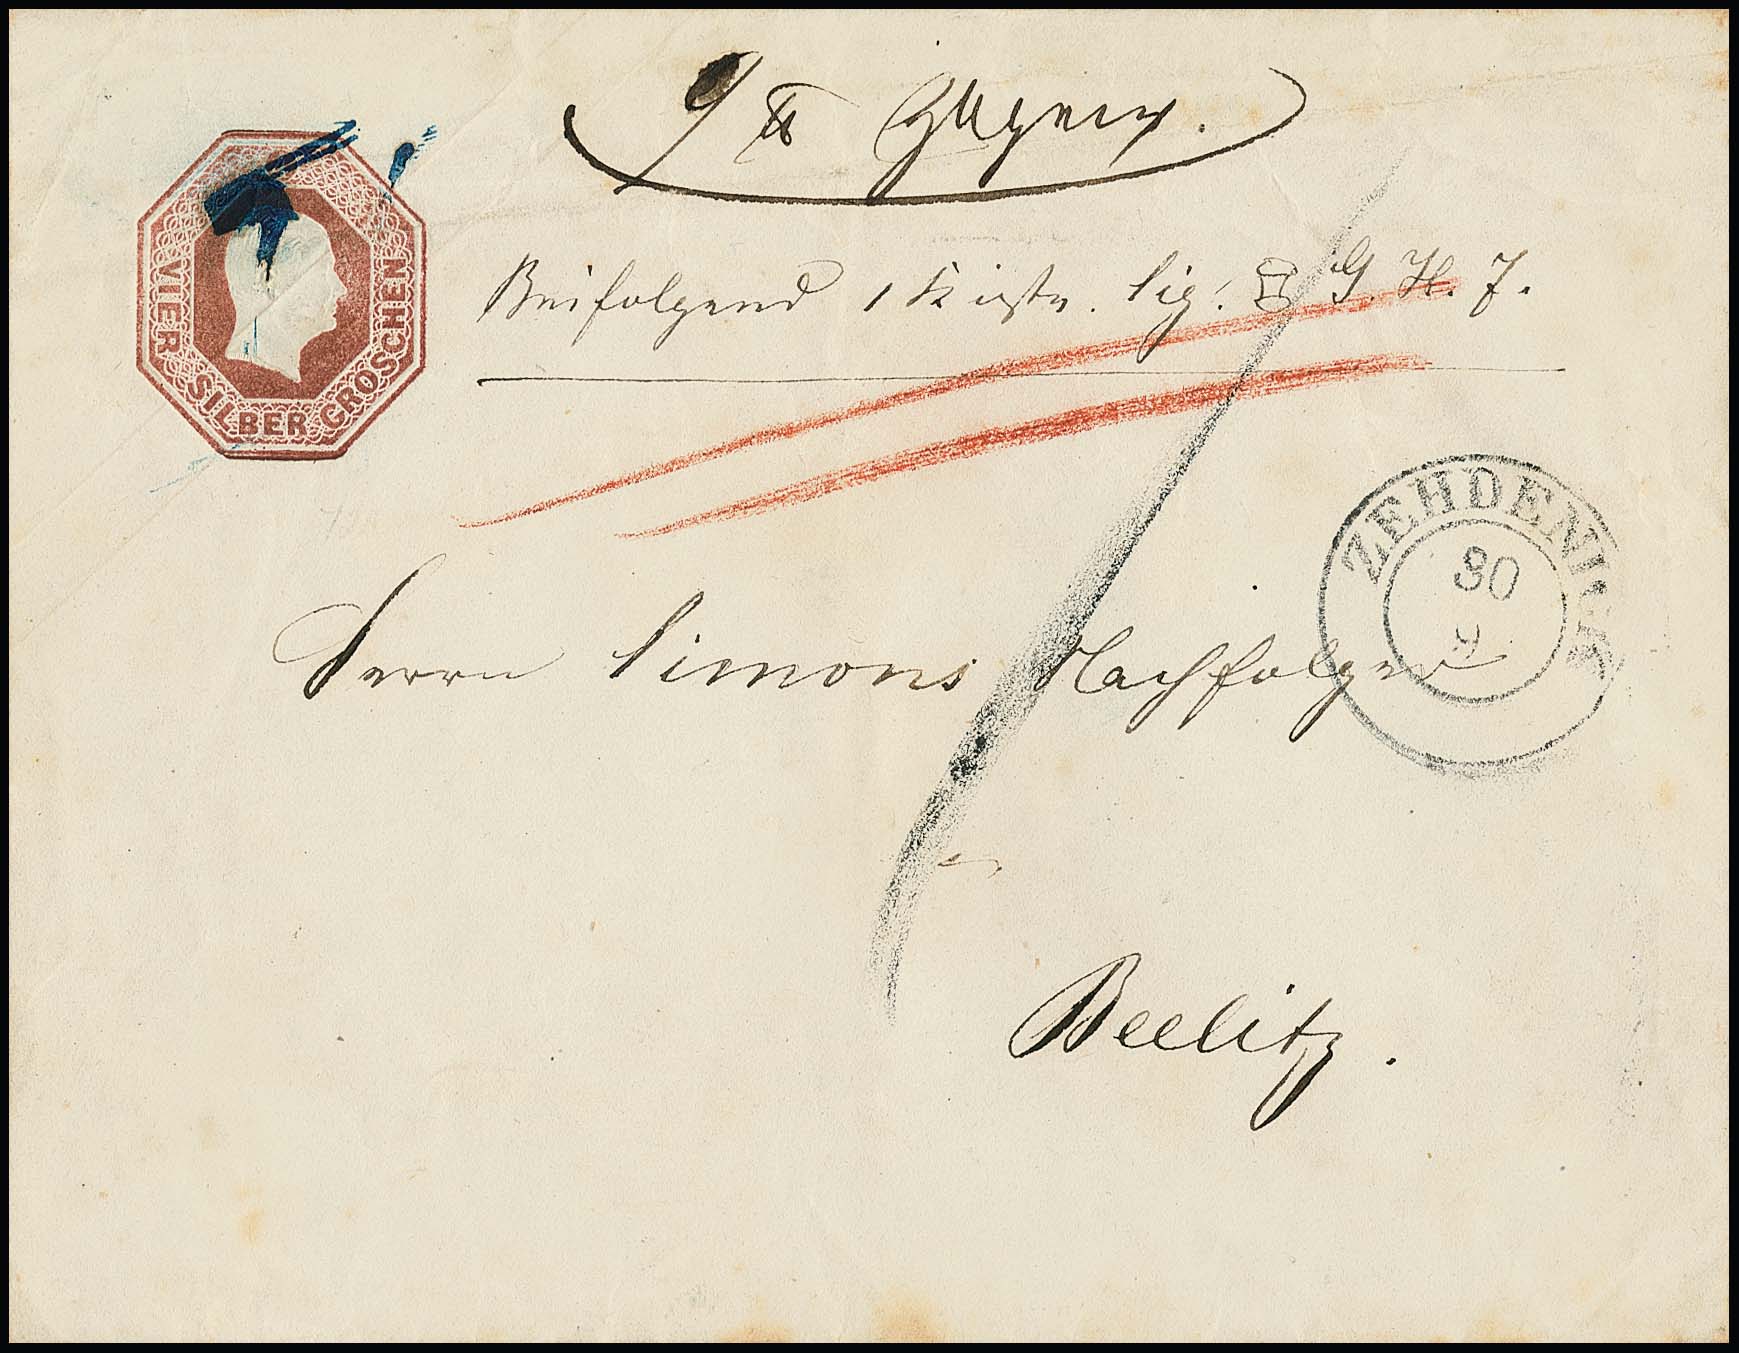 9 ℔
VIER SILBER GROSCHEN
Beifolgend 1 Kiste. sig. G. H. J.
ZEHDENICK
30
9
Herrn Simons Nachfolger
Beelitz.